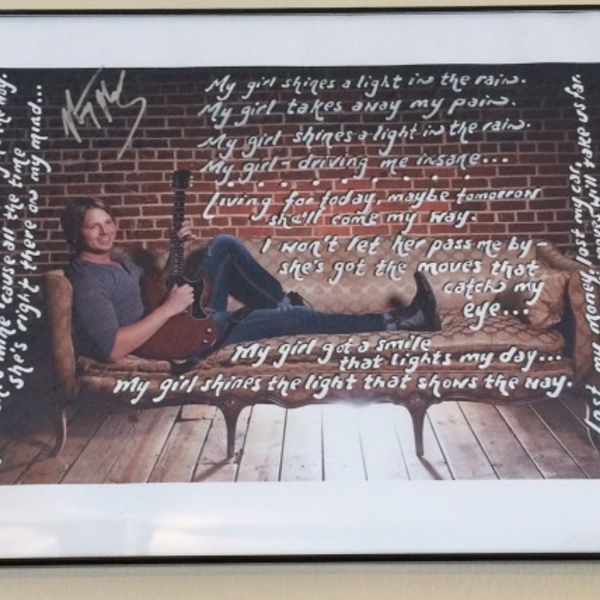 My girl shines a light in the rain.
My girl takes away my pain.
My girl shines a light in the rain.
My girl - driving me insane...
Living for today, maybe tomorrow
she'll come my way.
I won't let her pass me by -
she's got the moves that
catch my
eye...
My girl got a smile
that lights my day...
My girl shines the light that shows the way.
'cause all the time
she's right there on my mind...
lost my money, lost my car,
will take us far.